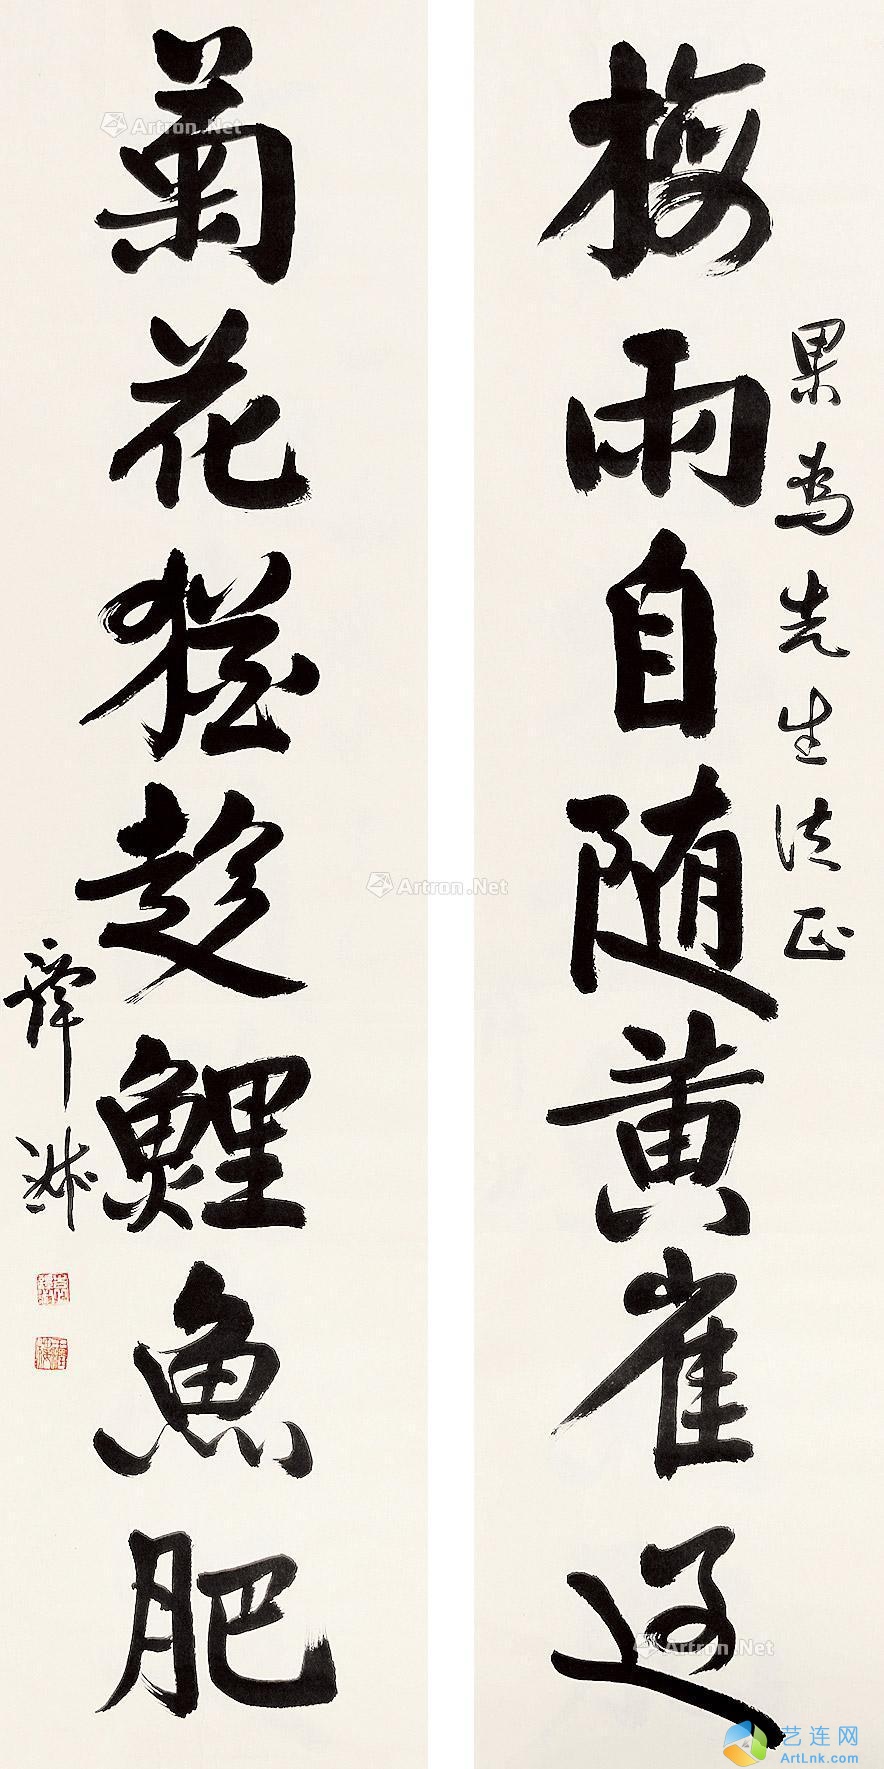 梅雨自随黄雀過
果為先生法正
菊花猶趁鯉魚肥
譚淋
Artron.Net
Artron.Net
Artron.Net
艺连网
ArtLnk.com